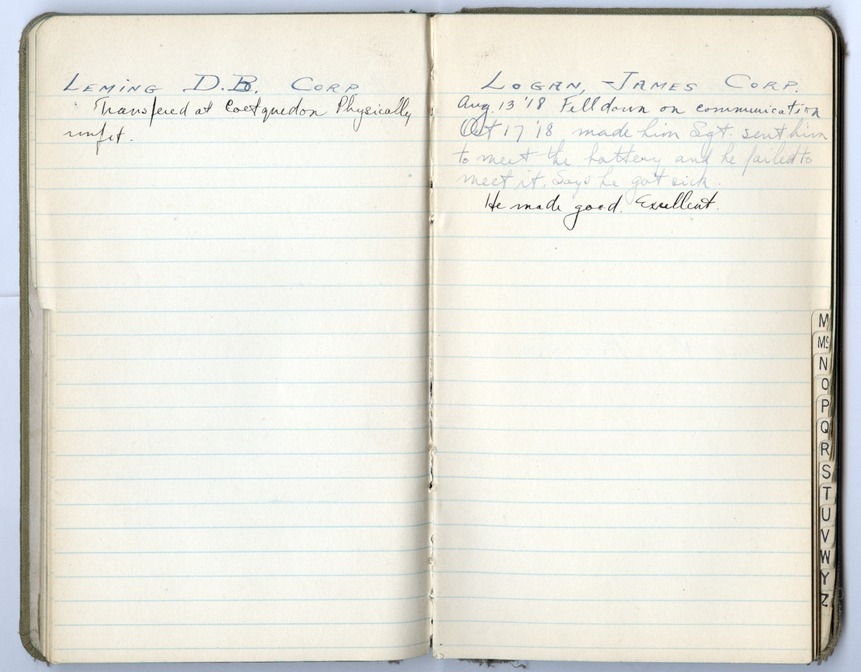 LEMING D.B. CORP
Transfered at Coetquedon Physically
unfit.
LOGAN, JAMES CORP.
Aug 13 '18 Fell down on communication
Oct 17 '18 made him Sgt. sent him
to meet the battery and he failed to
meet it. Says he got sick.
He made good. Excellent.
M
Mc
N
O
P
Q
R
S
T
U
V
W
Y
Z